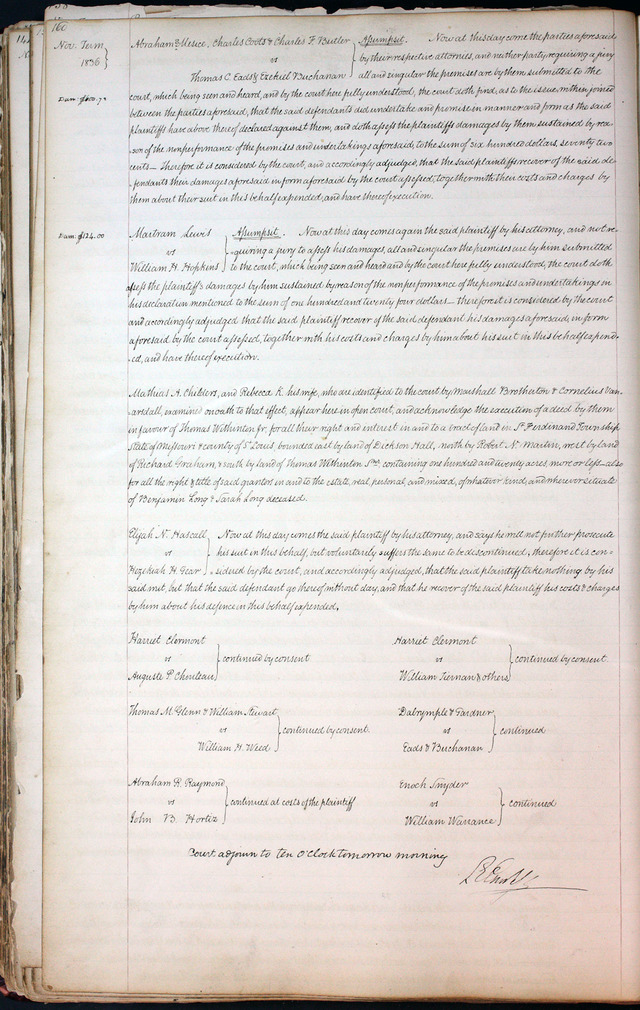 160
Nov. Term
1836
Abraham Meserve, Charles Coots & Charles F Butler } Assumpsit. Now at this day come the parties aforesaid
vs
by their respective attornies, and neither party requiring a jury
Thomas C. Eads & Ezekiel Buchanan
all and singular the premises are by them submitted to the
Dam: $600.72
court, which being seen and heard, and by the court here fully understood, the court doth find, as to the issue within joined
between the parties aforesaid, that the said defendants did undertake and promise in manner and form as the said
plaintiffs have above thereof declared against them, and doth assess the plaintiffs damages by them sustained by rea-
son of the nonperformance of the premises and undertakings aforesaid to the sum of six hundred dollars, seventy two
cents — Therefore it is considered by the court, and accordingly adjudged, that the said plaintiffs recover of the said de-
fendants their damages aforesaid in form aforesaid by the court assessed, together with their costs and charges by
them about their suit in this behalf expended, and have thereof execution.
Dam: $124.00
Martram Lewis } Assumpsit. Now at this day comes again the said plaintiff by his attorney, and not re-
vs
quiring a jury to assess his damages, all and singular the premises are by him submitted
William H. Hopkins } to the court, which being seen and heard and by the court here fully understood, the court doth
assess the plaintiff's damages by him sustained by reason of the nonperformance of the premises and undertakings in
his declaration mentioned to the sum of one hundred and twenty four dollars — therefore it is considered by the court
and accordingly adjudged that the said plaintiff recover of the said defendant his damages aforesaid, in form
aforesaid by the court assessed, together with his costs and charges by him about his suit in this behalf expend-
ed, and have thereof execution.
Mathias A. Childers, and Rebecca K. his wife, who are identified to the court by Marshall Brotherton & Cornelius Van-
arsdall, examined on oath to that effect, appear here in open court, and acknowledge the execution of a deed by them
in favour of Thomas Withinton jr. for all their right and interest in and to a tract of land in St Ferdinand Township
State of Missouri & county of St Louis, bounded east by land of Dickson Hall, north by Robert N. Martin, west by land
of Richard Graham, & south by land of Thomas Withinton Sr., containing one hundred and twenty acres more or less — also
for all the right & title of said grantors in and to the estate, real, personal, and mixed, of whatever kind, and wherever situate
of Benjamin Long & Sarah Long deceased.
Elijah N. Hascall } Now at this day comes the said plaintiff by his attorney, and says he will not further prosecute
vs
his suit in this behalf, but voluntarily suffers the same to be discontinued; therefore it is con-
Hezekiah H. Gear } sidered by the court, and accordingly adjudged, that the said plaintiff take nothing by his
said writ, but that the said defendant go thereof without day, and that he recover of the said plaintiff his costs & charges
by him about his defence in this behalf expended.
Harriet Clermont
vs } continued by consent
Auguste P. Chouteau
Harriet Clermont
vs } continued by consent.
William Tiernan & others
Thomas M. Glenn & William Stewart
vs } continued by consent.
William H. Weed
Dalrymple & Gardner
vs } continued
Eads & Buchanan
Abraham R. Raymond
vs } continued at costs of the plaintiff
John B. Hortiz
Enoch Snyder
vs } continued
William Warrance
Court adjourn to ten O'Clock tomorrow morning